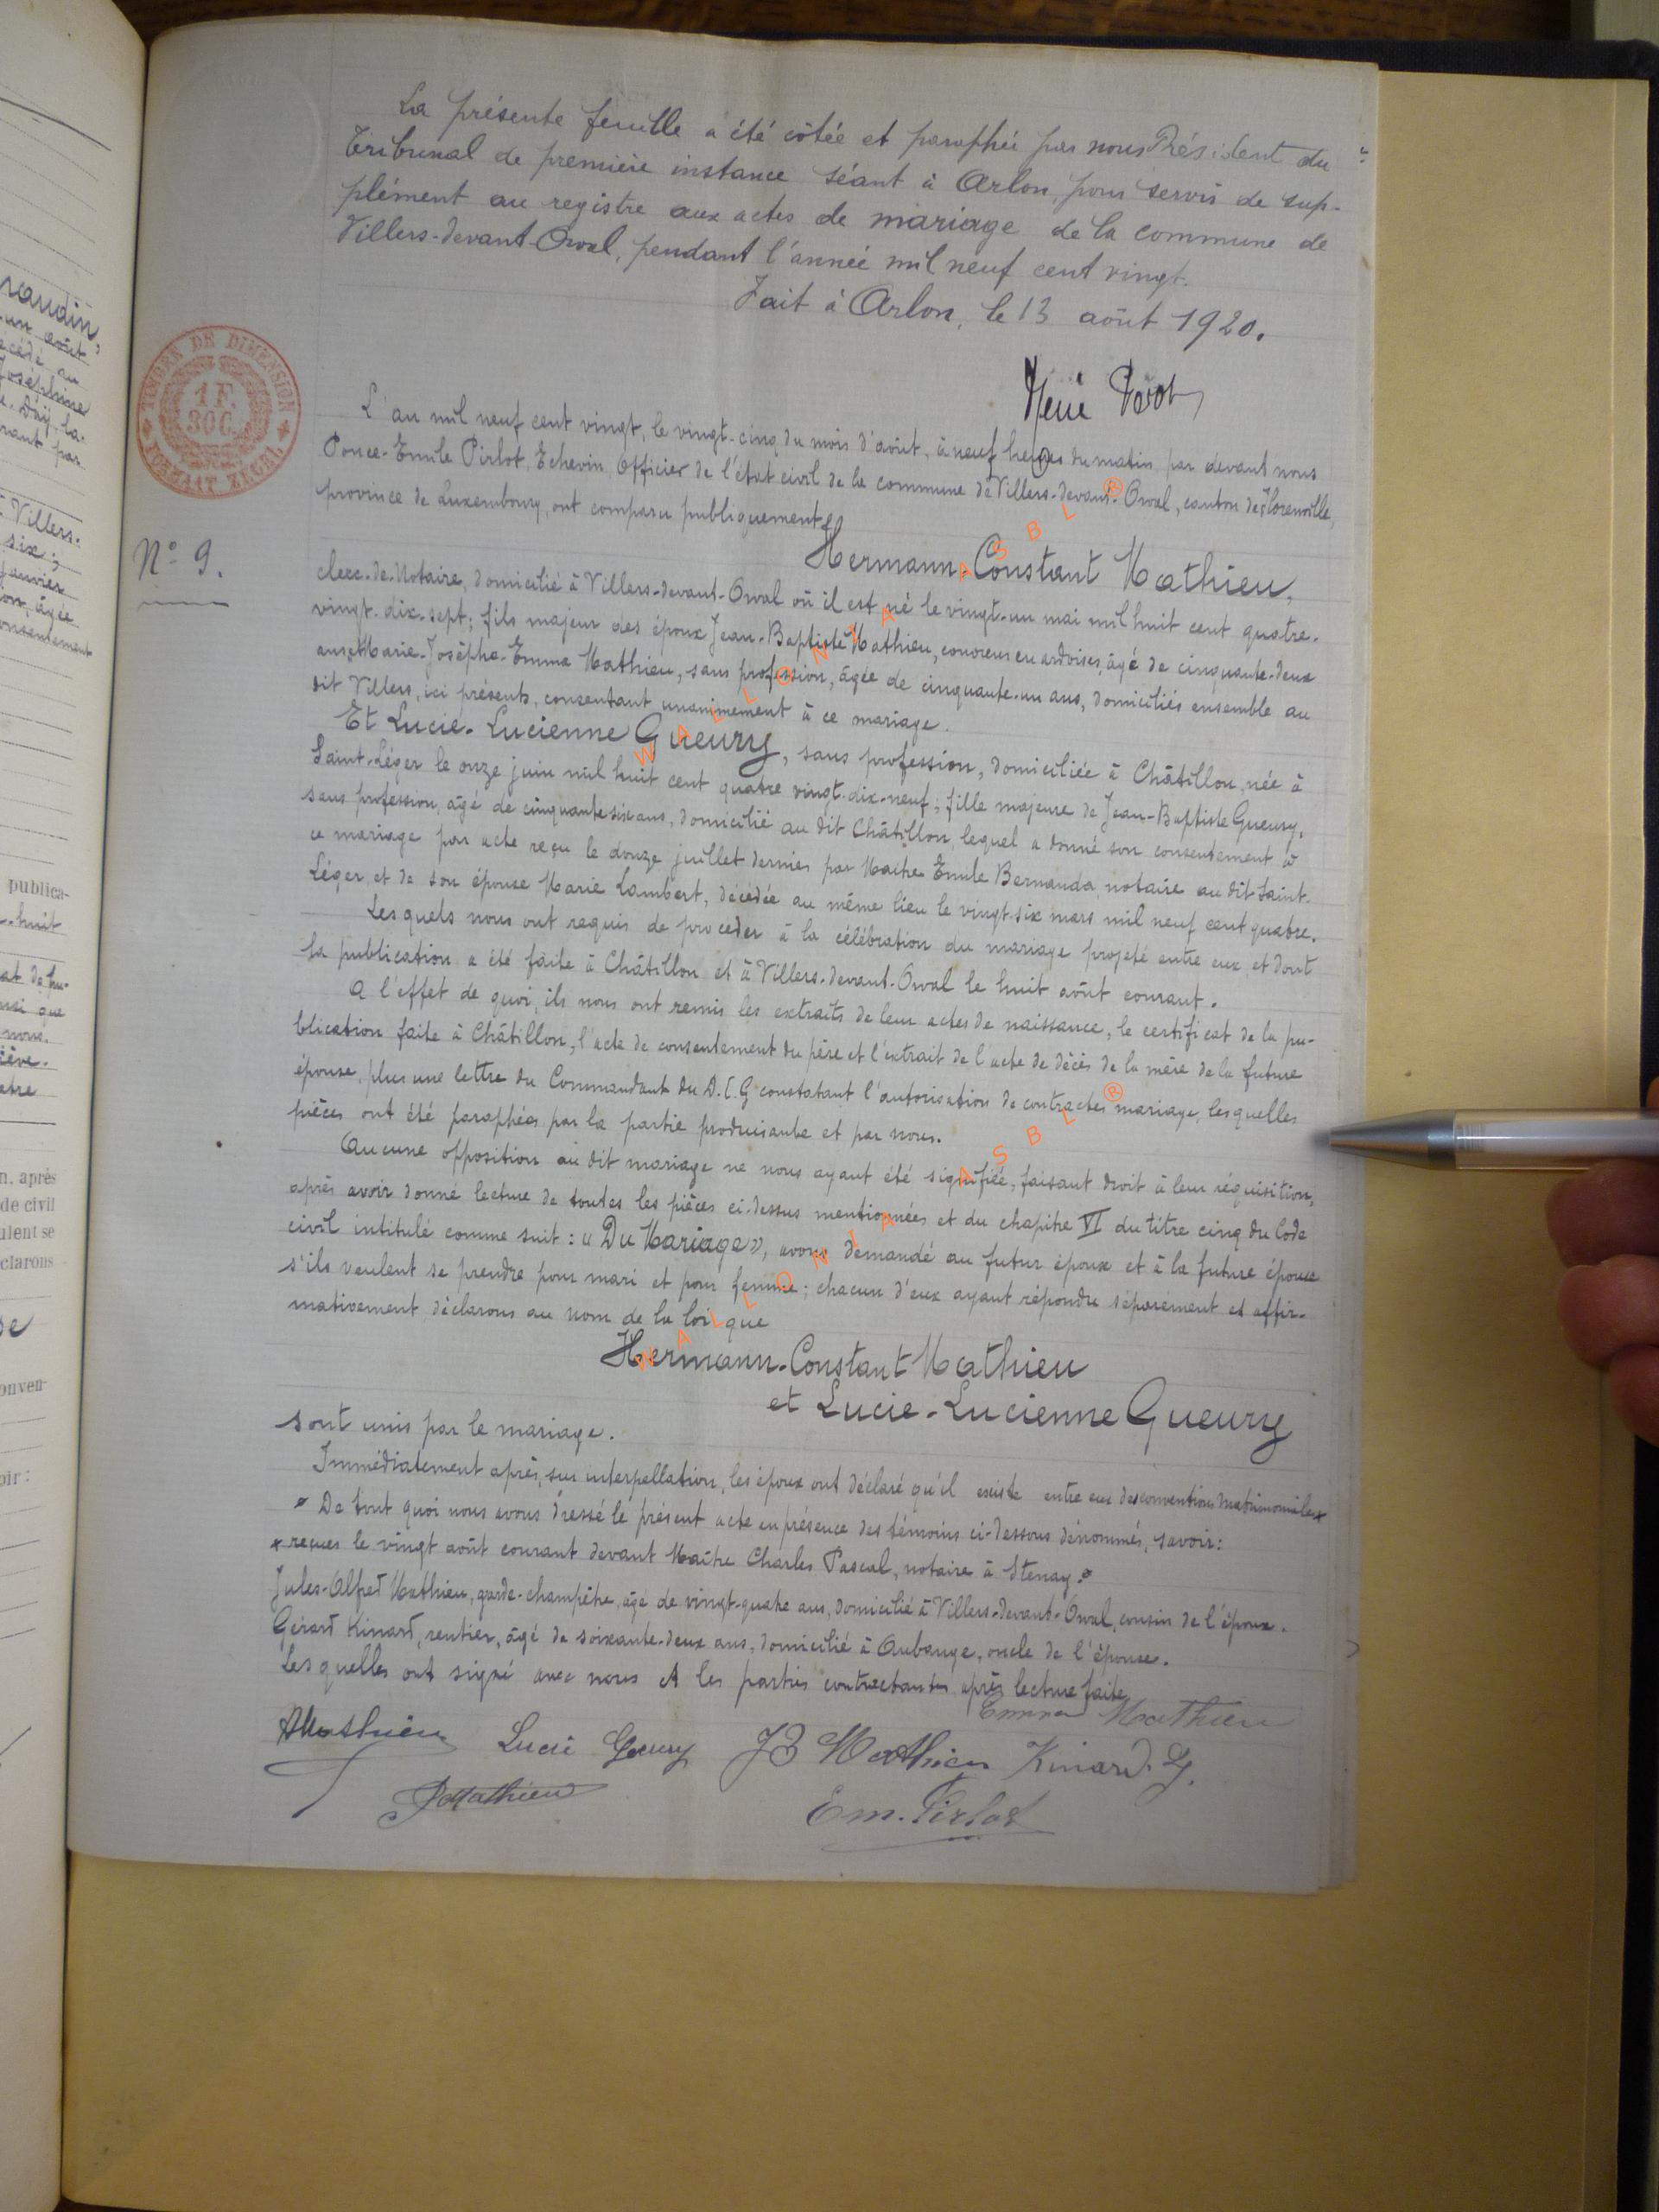 La présente feuille a été côtée et paraphée par nous Président du
Tribunal de première instance séant à Arlon, pour servir de sup-
plément au registre aux actes de mariage de la commune de
Villers-devant-Orval, pendant l'année mil neuf cent vingt.
Fait à Arlon, le 13 août 1920.
TIMBRE DE DIMENSION
1 F.
30 C.
FORMAAT ZEGEL
L'an mil neuf cent vingt, le vingt-cinq du mois d'août, à neuf heures du matin, par devant nous
Ponce-Emile Pirlot, Echevin, Officier de l'état civil de la commune de Villers-devant-Orval, canton de Florenville,
province de Luxembourg, ont comparu publiquement
N° 9.
Hermann-Constant Mathieu,
clerc-de-Notaire, domicilié à Villers-devant-Orval où il est né le vingt-un mai mil huit cent quatre-
vingt-dix-sept; fils majeur des époux Jean-Baptiste Mathieu, couvreur en ardoises, âgé de cinquante-deux
ans, et Marie-Josèphe-Emma Mathieu, sans profession, âgée de cinquante-un ans, domiciliés ensemble au
dit Villers, ici présents, consentant unanimement à ce mariage.
Et Lucie-Lucienne Gueury, sans profession, domiciliée à Châtillon, née à
Saint-Léger le onze juin mil huit cent quatre vingt-dix-neuf; fille majeure de Jean-Baptiste Gueury,
sans profession, âgé de cinquante six ans, domicilié au dit Châtillon, lequel a donné son consentement à
ce mariage par acte reçu le douze juillet dernier par Maître Emile Bernanda, notaire au dit Saint-
Léger, et de son épouse Marie Lambert, décédée au même lieu le vingt-six mars mil neuf cent quatre.
Lesquels nous ont requis de procéder à la célébration du mariage projeté entre eux et dont
la publication a été faite à Châtillon et à Villers-devant-Orval le huit août courant.
A l'effet de quoi, ils nous ont remis les extraits de leur actes de naissance, le certificat de la pu-
blication faite à Châtillon, l'acte de consentement du père et l'extrait de l'acte de décès de la mère de la future
épouse, plus une lettre du Commandant du D.I.G constatant l'autorisation de contracter mariage, lesquelles
pièces ont été paraphées par la partie produisante et par nous.
Aucune opposition au dit mariage ne nous ayant été signifiée, faisant droit à leur réquisition,
après avoir donné lecture de toutes les pièces ci-dessus mentionnées et du chapitre VI du titre cinq du Code
civil intitulé comme suit: « Du Mariage », avons demandé au futur époux et à la future épouse
s'ils veulent se prendre pour mari et pour femme; chacun d'eux ayant répondu séparément et affir-
mativement, déclarons au nom de la loi que
Hermann-Constant Mathieu
et Lucie-Lucienne Gueury
sont unis par le mariage.
Immédiatement après, sur interpellation, les époux ont déclaré qu'il existe entre eux des conventions matrimoniales
De tout quoi nous avons dressé le présent acte en présence des témoins ci-dessous dénommés, savoir:
reçues le vingt août courant devant Maître Charles Pascal, notaire à Stenay.
Jules-Alfred Mathieu, garde-champêtre, âgé de vingt-quatre ans, domicilié à Villers-devant-Orval, cousin de l'époux.
Gérard Kinard, rentier, âgé de soixante-deux ans, domicilié à Aubange, oncle de l'épouse.
Lesquelles ont signé avec nous et les parties contractantes après lecture faite.
Emma Mathieu
Mathieu Lucie Gueury JB Mathieu Kinard. G.
Mathieu
Em. Pirlot
WALLONIA ASBL ®
WALLONIA ASBL ®